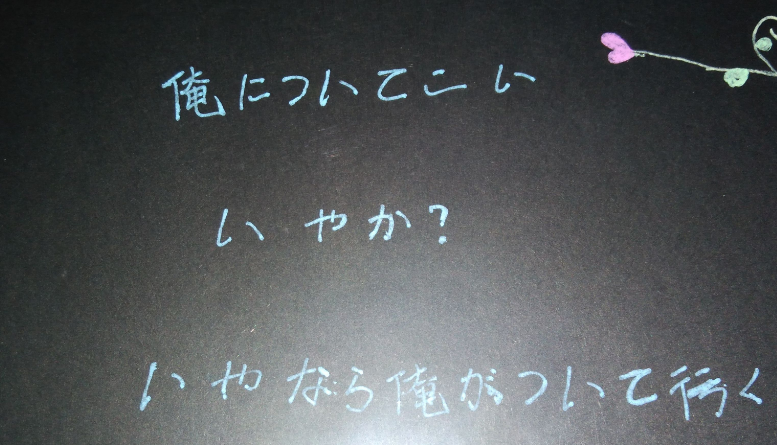 俺についてこい
いやか?
いやなら俺がついて行く